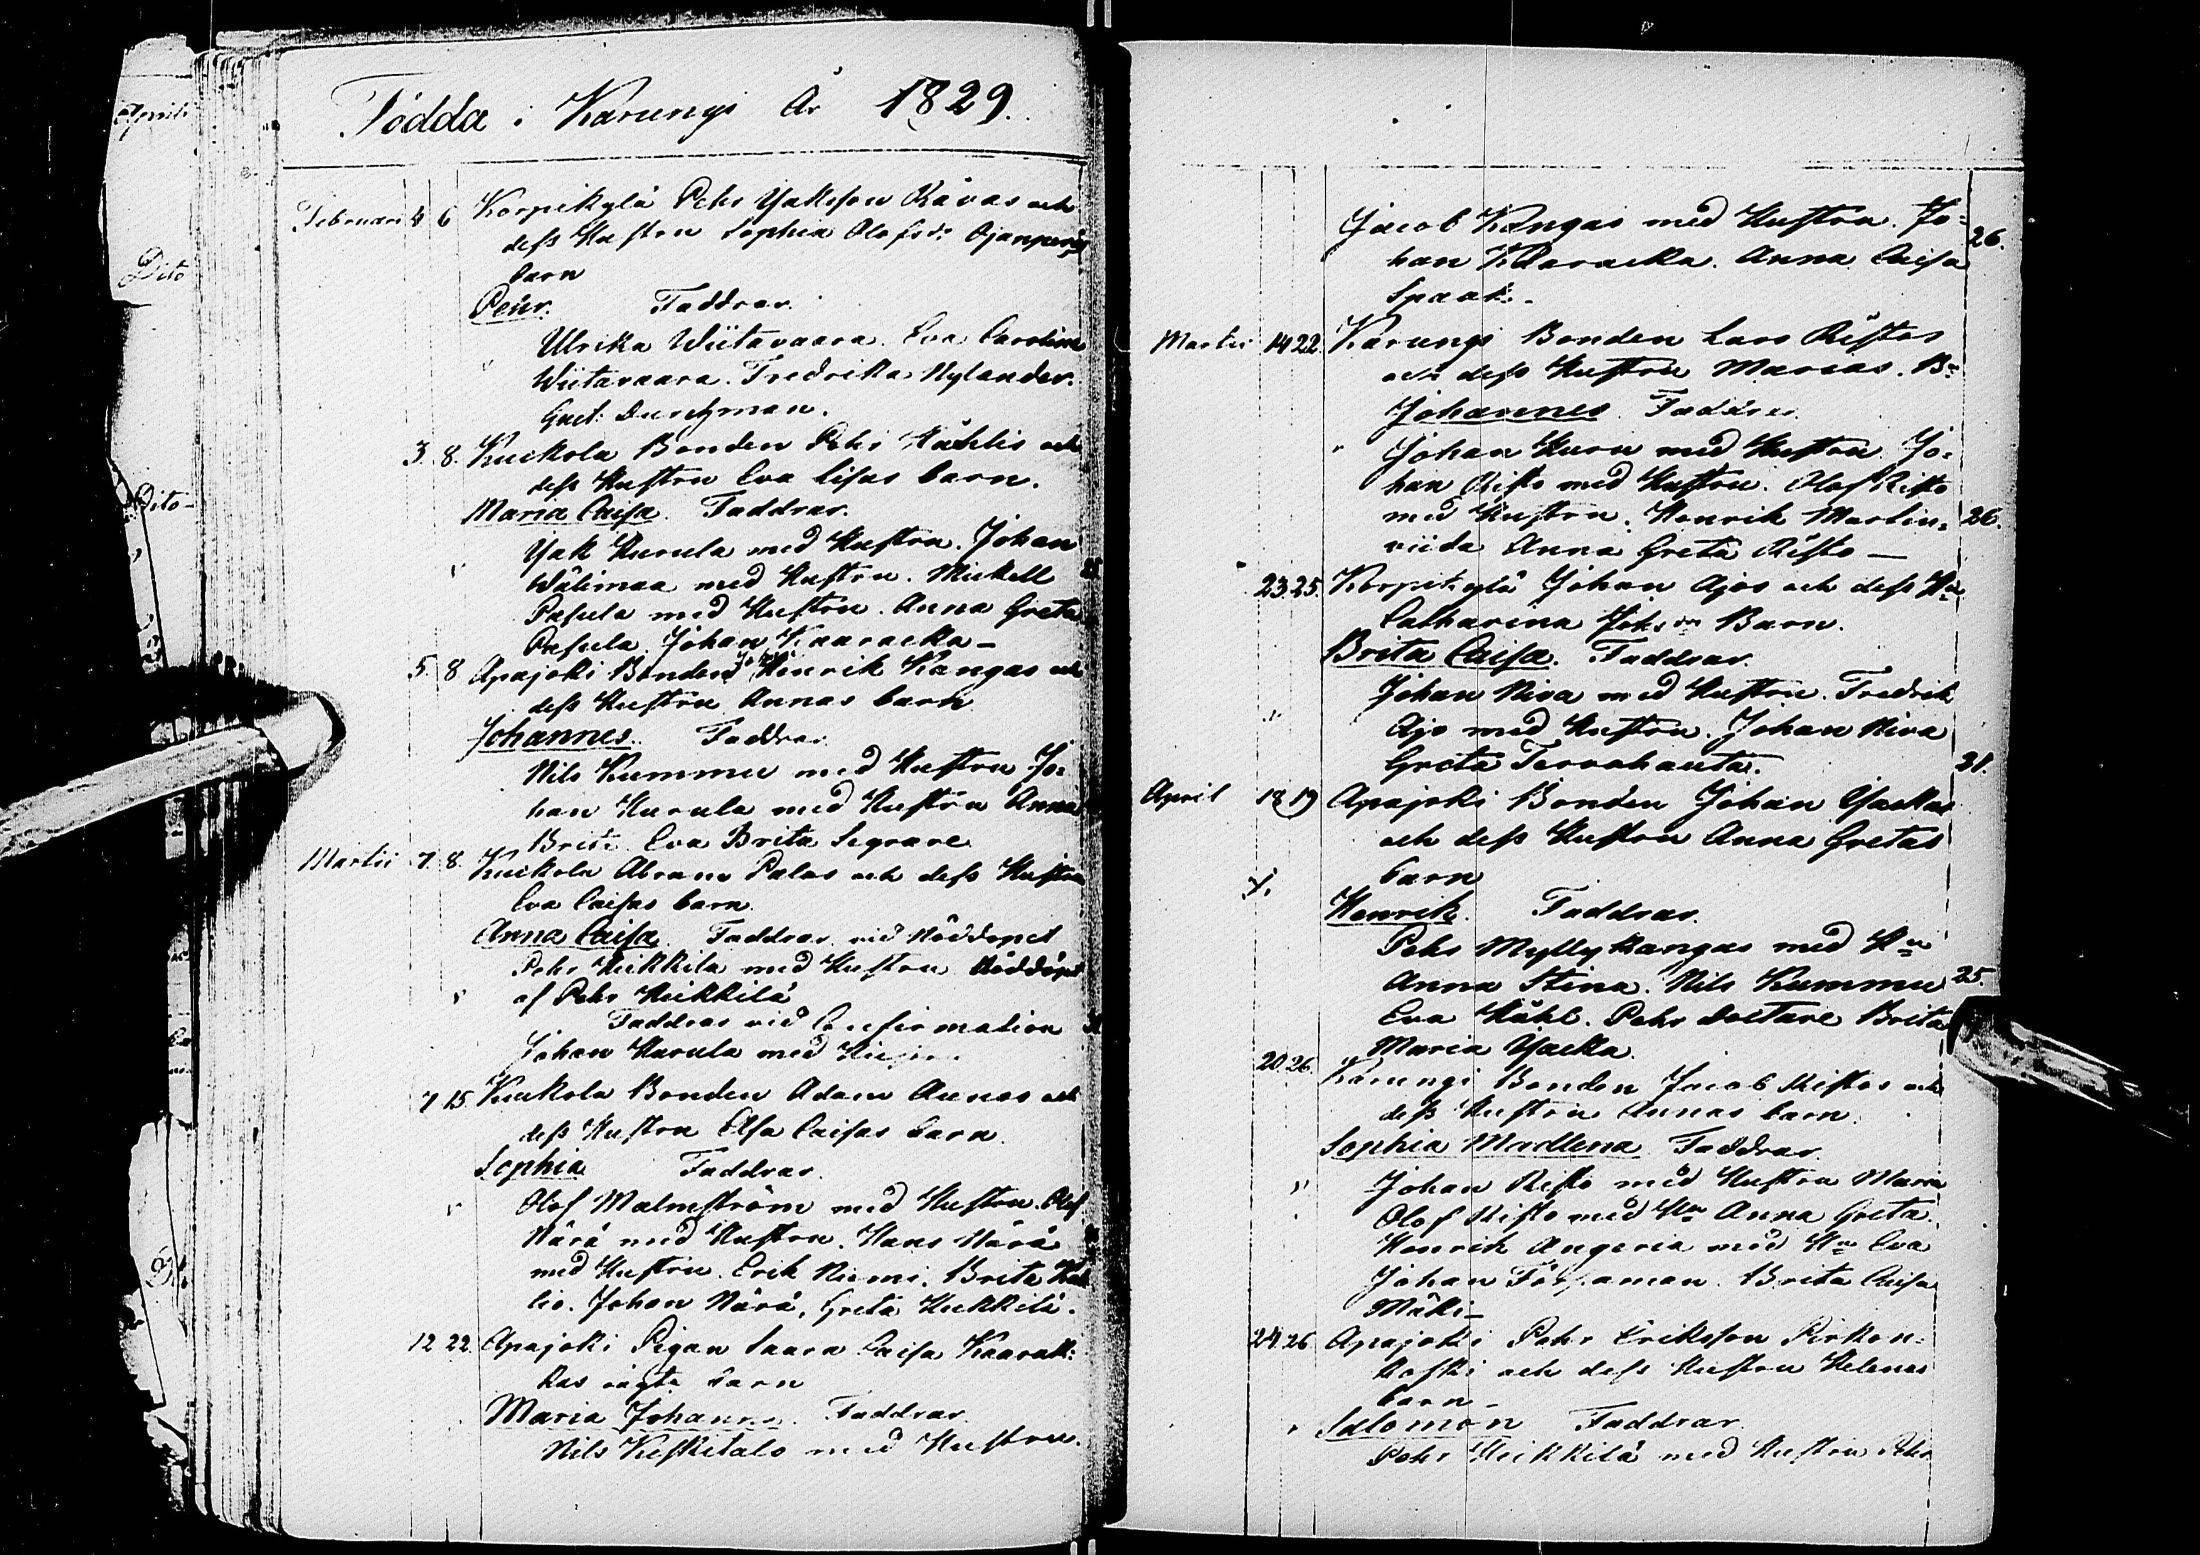 Födda i Karungi År 1829.
Februari 4 6 Korpikylä Pehr Yaksson Rävas och
dess Hustru Sophia Olofsdr Ojanperäs
barn
Pehr. Faddrar.
Ulrika Wiitavaara. Eva Carolina
Wiitavaara. Fredrika Nylander.
3. 8. Kuckola Bonden Pehr och
dess Hustru Eva Lisas barn.
Maria Caisa. Faddrar.
Yak Kurula med Hustru. Johan
Wälimaa med Hustru. Mickell
Pasula med Hustru. Anna Greta
Pasula. Johan Kaaracka—
5. 8 Apajoki Bonden Henrik Kangas och
dess Hustru Annas barn
Johannes. Faddrar
Nils Kummu med Hustru Jo-
han Kurula med Hustru Anna
Brita. Eva Brita Segrare
Martii 7. 8. Kuckola Abram Palos och dess Hustru
Eva Caisas barn.
Anna Caisa. Faddrar vid Nöddopet
Pehr Heikkilä med Hustru Nöddöpt
af Pehr Heikkilä
Faddrar vid Confirmation
Johan Kurula med Hustru
7 15 Kuckola Bonden Adam Aunos och
dess Hustru Elsa Caisas barn.
Sophia Faddrar.
Olof Malmström med Hustru. Olof
Närä med Hustru. Hans Närä
med Hustru. Erik Niemi. Brita
lio. Johan Närä, Greta Heikkilä.
12 22 Apajoki Pigan Saara Caisa Kaarak-
kas oägta barn
Maria Johanna. Faddrar
Nils Keskitalo med Hustru.
Jacob Kangas med Hustru. Jo-
han Kaaracka. Anna Caisa
Spaak.-
26.
Martii 14 22. Karungi Bonden Lars Ristos
och dess Hustru Marias. Bn
Johannes Faddrar
Johan Kuru med Hustru. Jo-
han Risto med Hustru. Olof Risto
med Hustru. Henrik Martin-
viida Anna Greta Risto—
26.
23 25. Korpikylä Johan Ajos och dess Hu
Catharina Johsdr Barn.
Brita Caisa. Faddrar.
Johan Niva med Hustru. Fredrik
Ajo med Hustru. Johan Niva
Greta Tervahauta.
31.
April 18 19 Apajoki Bonden Johan Yackas
och dess Hustru Anna Gretas
barn
Henrik. Faddrar.
Pehr Myllykangas med Hu
Anna Stina. Nils Kummu
25.
Eva Pehr Brita
Maria Yacka.
20 26. Karungi Bonden Jacob Ristos och
dess Hustru Annas barn.
Sophia Madlena Faddrar.
Johan Risto med Hustru Maria
Olof Risto med Hu Anna Greta.
Henrik Angeria med Hu Eva
Johan Brita Caisa
Mäki—
24 26 Apajoki Pehr Eriksson Pirkon-
koski och dess Hustru Helenas
barn-
Salomon Faddrar
Pehr Heikkilä med Hustru Pehr